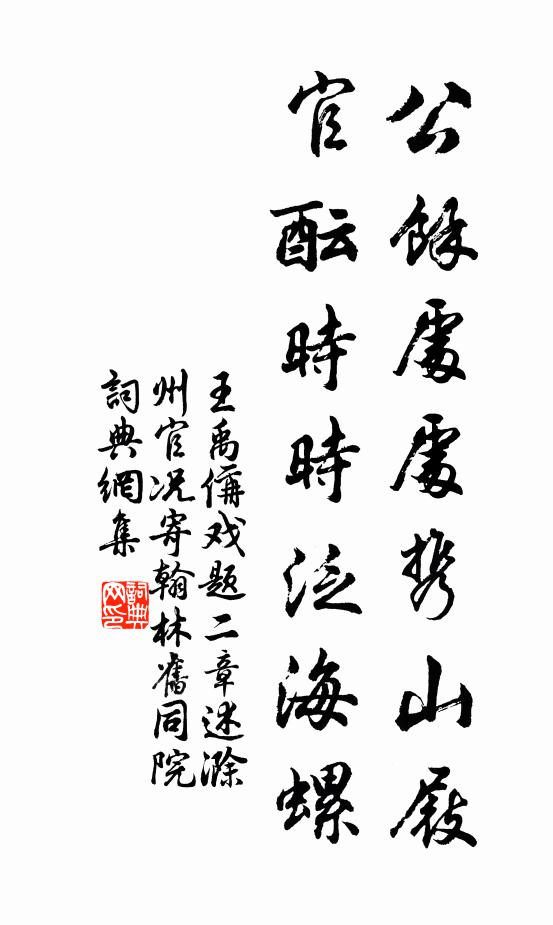 公餘處處携山屐
官酝時時泛海螺
王禹偁戏题二章述滁
州官况寄翰林舊同院
詞典網集
詞典
网印